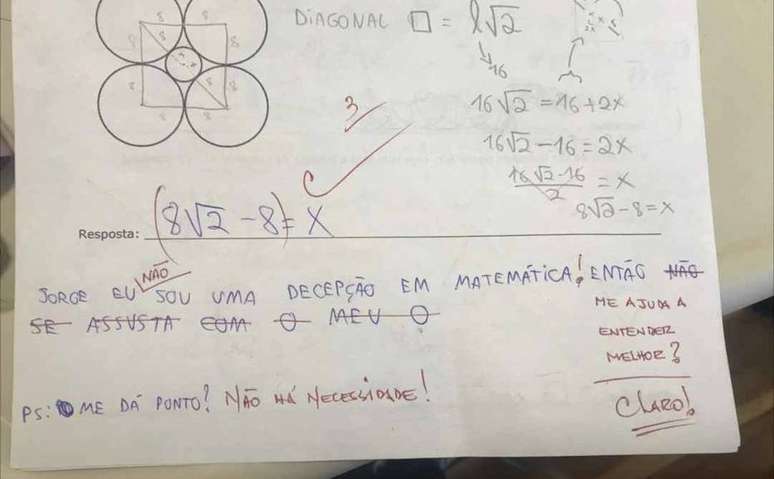 8 8
8 8 8
8 8
8 8
DIAGONAL □ = l√2
16
16√2 = 16 + 2x
3
16√2 - 16 = 2x
16√2 - 16 / 2 = x
8√2 - 8 = x
C
Resposta: (8√2 - 8) = x
NÃO
JORGE EU SOU UMA DECEPÇÃO EM MATEMÁTICA! ENTÃO NÃO
SE ASSUSTA COM O MEU O
ME AJUDA A
ENTENDER
MELHOR?
PS: ME DÁ PONTO? NÃO HÁ NECESSIDADE!
CLARO!